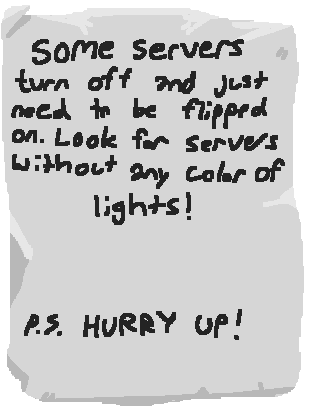 Some servers
turn off and just
need to be flipped
on. Look for servers
without any color of
lights!
P.S. HURRY UP!